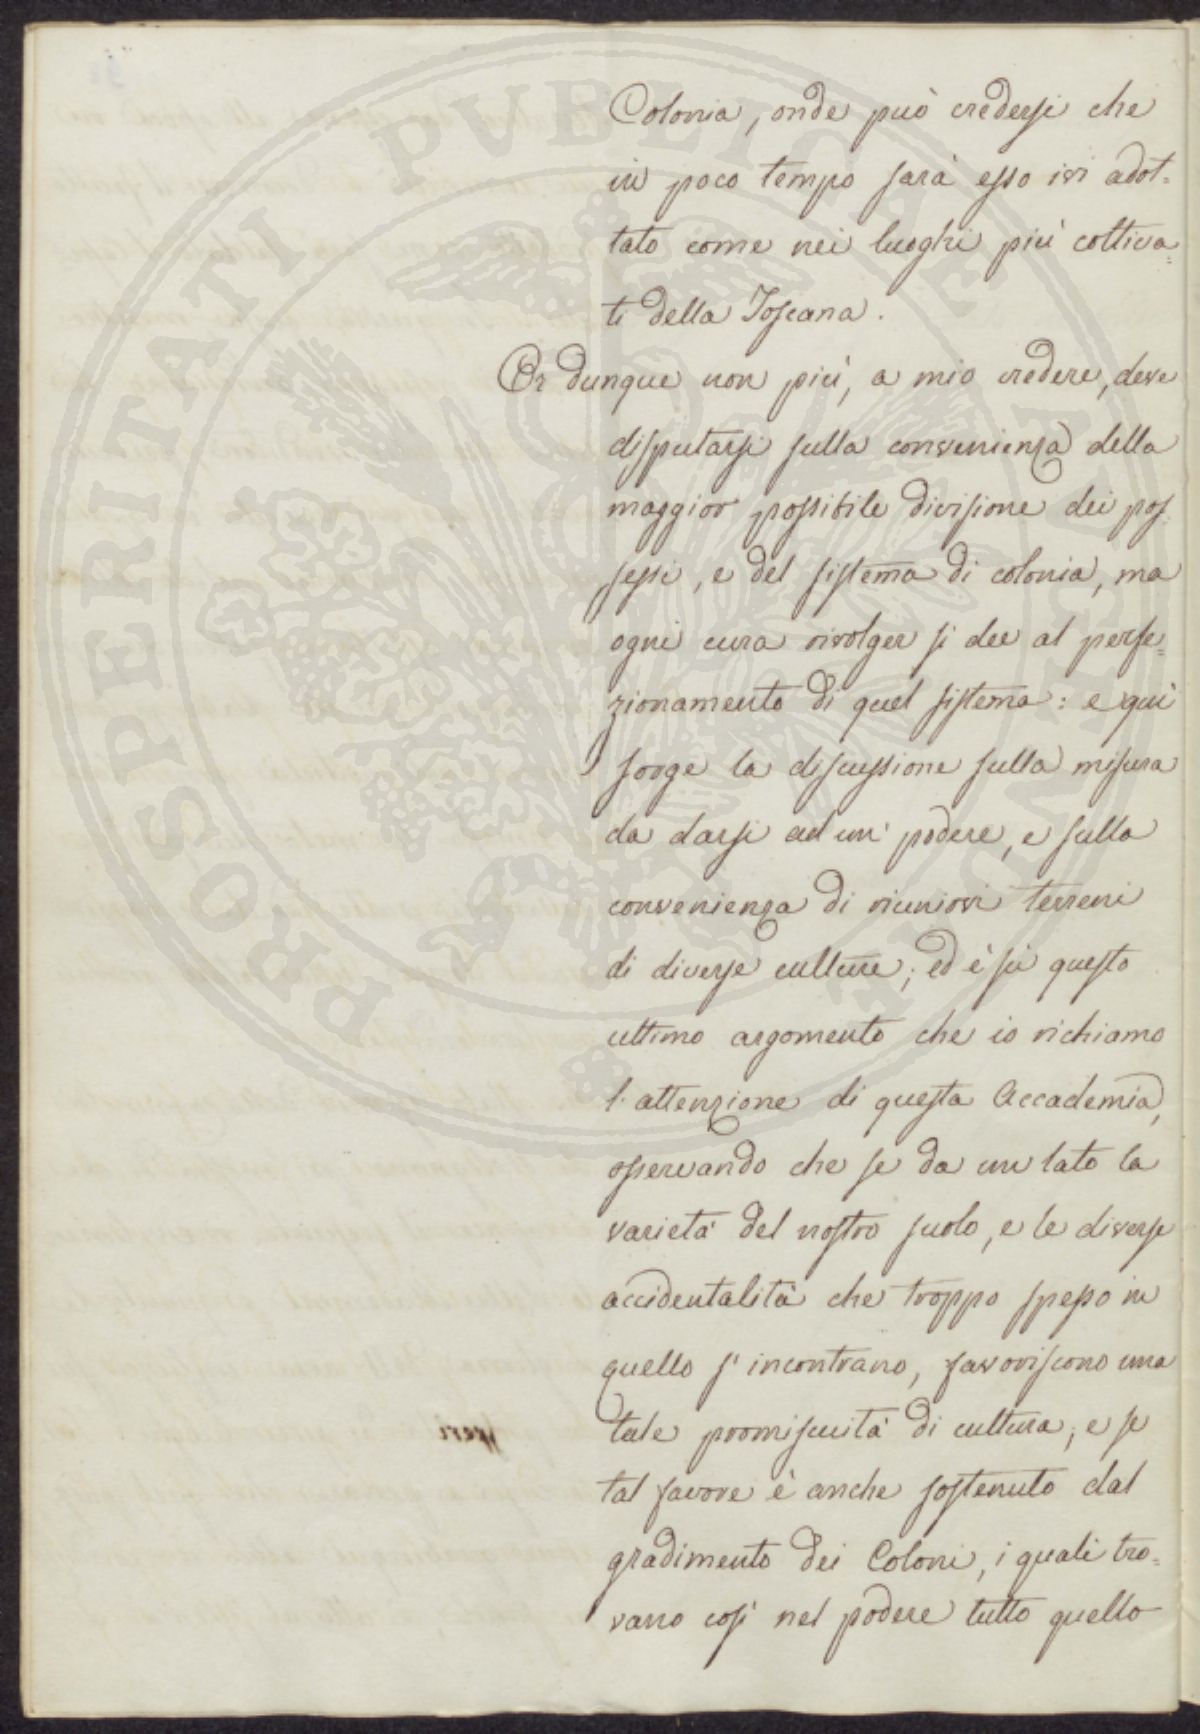 Colonia, onde può credersi che
in poco tempo sarà esso ivi adot=
tato come nei luoghi più coltiva=
ti della Toscana.
Or dunque non più, a mio credere, deve
disputarsi sulla convenienza della
maggior possibile divisione dei pos
sessi, e del sistema di colonia, ma
ogni cura rivolger si dee al perfe=
zionamento di quel sistema: e quì
sorge la discussione sulla misura
da darsi ad un' podere, e sulla
convenienza di riunirvi terreni
di diverse culture; ed è sù questo
ultimo argomento che io richiamo
l'attenzione di questa Accademia,
osservando che se da un lato la
varietà del nostro suolo, e le diverse
accidentalità che troppo spesso in
quello s'incontrano, favoriscono una
tale promiscuità di cultura; e se
tal favore è anche sostenuto dal
gradimento dei Coloni, i quali tro=
vano così nel podere tutto quello
PROSPERITATI PUBLICAE AUGENDAE